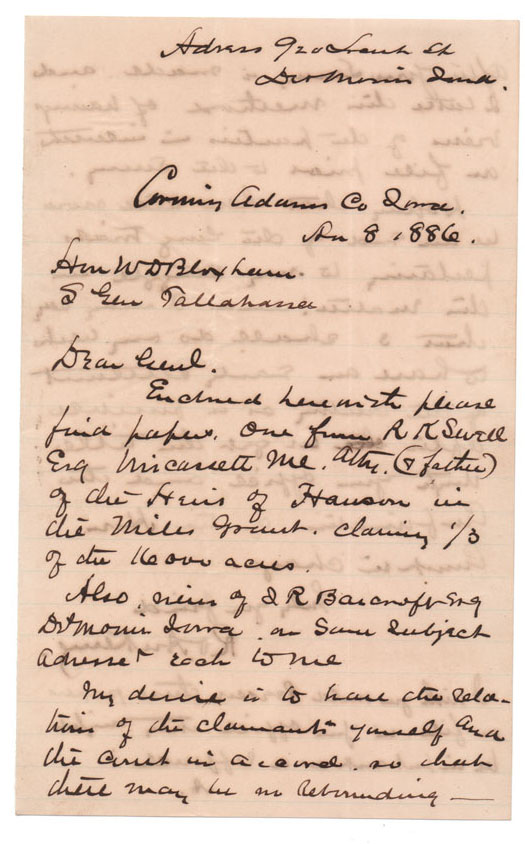 Adress 920 Locust St
Des Moines Iowa.
Corning Adams Co Iowa.
8, 1886.
Hon W D Bloxham
S Gen Tallahassa
Dear Genl.
Enclosed herewith please
find papers. One from R K Sewell
Esq Wiscassett Me. Atty. (& father)
of the Heirs of Hanson in
the Miles Grant. claiming 1/3
of the 16000 acres.
Also, views of J R Barcroft Esq
Des Moines Iowa. on Same Subject
Adressed each to me
My desire is to have the rela-
tions of the claimants yourself and
the court in accord. so that
there may be no rebounding —